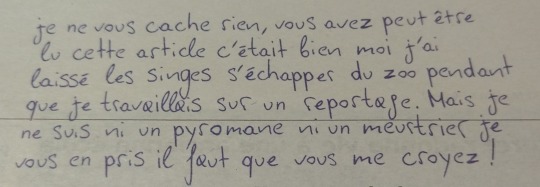 je ne vous cache rien, vous avez peut être
lu cette article c'était bien moi j'ai
laissé les singes s'échapper du zoo pendant
que je travaillais sur un reportage. Mais je
ne suis ni un pyromane ni un meurtrier je
vous en pris il faut que vous me croyez !